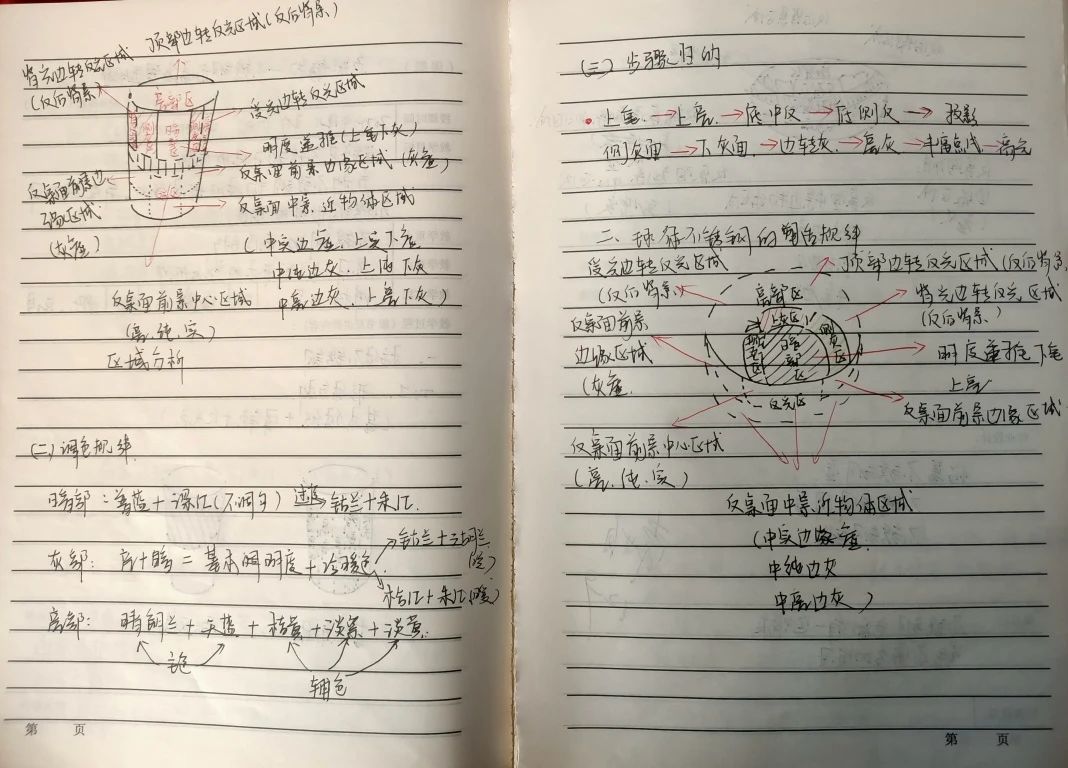 顶部边转反光区域(反后背景)
背光边转反光区域
(反后背景)
高部区
受光边转反光区域
明度渐推(上重下灰)
反桌面前景边缘区域 (灰重)
反桌面前景边
缘区域
(灰重)
反桌面中景.近物体区域
(中实边虚.上实下虚
中纯边灰.上纯下灰
中亮边灰.上亮下灰)
反桌面前景中心区域
(亮.纯.实)
区域分析
(二)调色规律
暗部:普蓝+深红(不调匀) 钴兰+朱红
灰部: 亮+暗=基本明度+冷暖色
钴兰+湖兰(冷)
桔红+朱红(暖)
亮部: 天蓝+桔黄+淡紫+淡黄
主色
辅色
第 页
(三)步骤归纳
上重.→上亮.→底中反→底侧反→投影
侧灰面→下灰面.→边转灰→层灰→丰富点线→高光
二、球体不锈钢的塑造规律
受光边转反光区域
(反后背景)
顶部边转反光区域(反后背景)
高部区
背光边转反光区域
(反后背景)
反桌面前景
边缘区域
(灰重
上灰区
暗部区
反光区
明度渐推下重
上亮
反桌面前景边缘区域
反桌面前景中心区域
(亮.纯.实)
反桌面中景近物体区域
(中实边虚.
中纯边灰
中亮边灰)
第 页